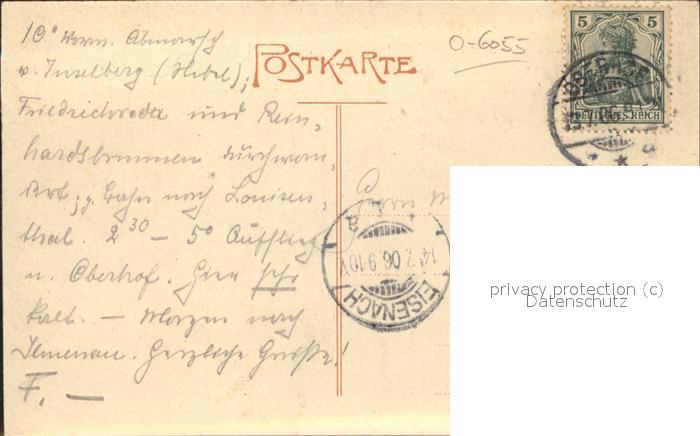 10° Vorm. Abmarsch
v. Inselberg (Nebel);
Friedrichroda und Rein-
hardsbrunnen durchwan-
dert; p. Bahn nach Louisen-
thal. 2³⁰ – 5⁰ Aufstieg
n. Oberhof. Hier sehr
kalt. — Morgen nach
Ilmenau. Herzliche Grüsse!
F. —
POSTKARTE
O-6055
5 5
DEUTSCHES REICH
EISENACH
14.7.06.9-10V
privacy protection (c)
Datenschutz